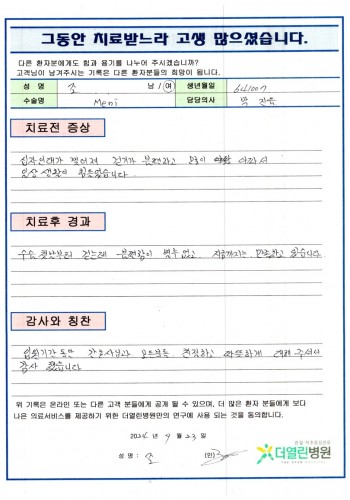 그동안 치료받느라 고생 많으셨습니다.
다른 환자분에게도 힘과 용기를 나누어 주시겠습니까?
고객님이 남겨주시는 기록은 다른 환자분들의 희망이 됩니다.
성 명 조 남 / 여 생년월일 641007
수술명 Meni 담당의사 박
치료전 증상
십자인대가 찢어져 걷기가 불편하고 많이 아파서
일상 생활이 힘들었습니다.
치료후 경과
수술 첫날부터 걷는데 불편함이 없고 지금까지는 만족하고 있습니다
감사와 칭찬
입원기간 동안 간호사님과 모두들 친절하고 따뜻하게 대해 주셔서
감사 했습니다
위 기록은 온라인 또는 다른 고객 분들에게 공개 될 수 있으며, 더 많은 환자 분들에게 보다
나은 의료서비스를 제공하기 위한 더열린병원만의 연구에 사용 되는 것을 동의합니다.
2024년 9월 23일
성 명 : 조 (인)
더열린병원